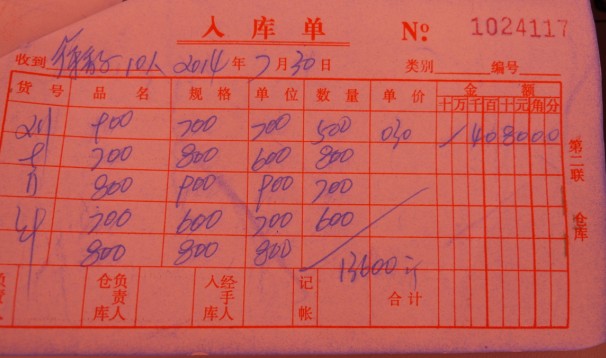 入库单 № 1024117
收到 10人 2014年7月30日 类别 编号
货号 品名 规格 单位 数量 单价 金额
十万千百十元角分
900 700 700 500 030 408000
700 800 600 800
800 900 900 700
700 600 700 600
800 800 800
13600
负责人 仓库负责人 入库经手人 记帐 合计
第二联 仓库